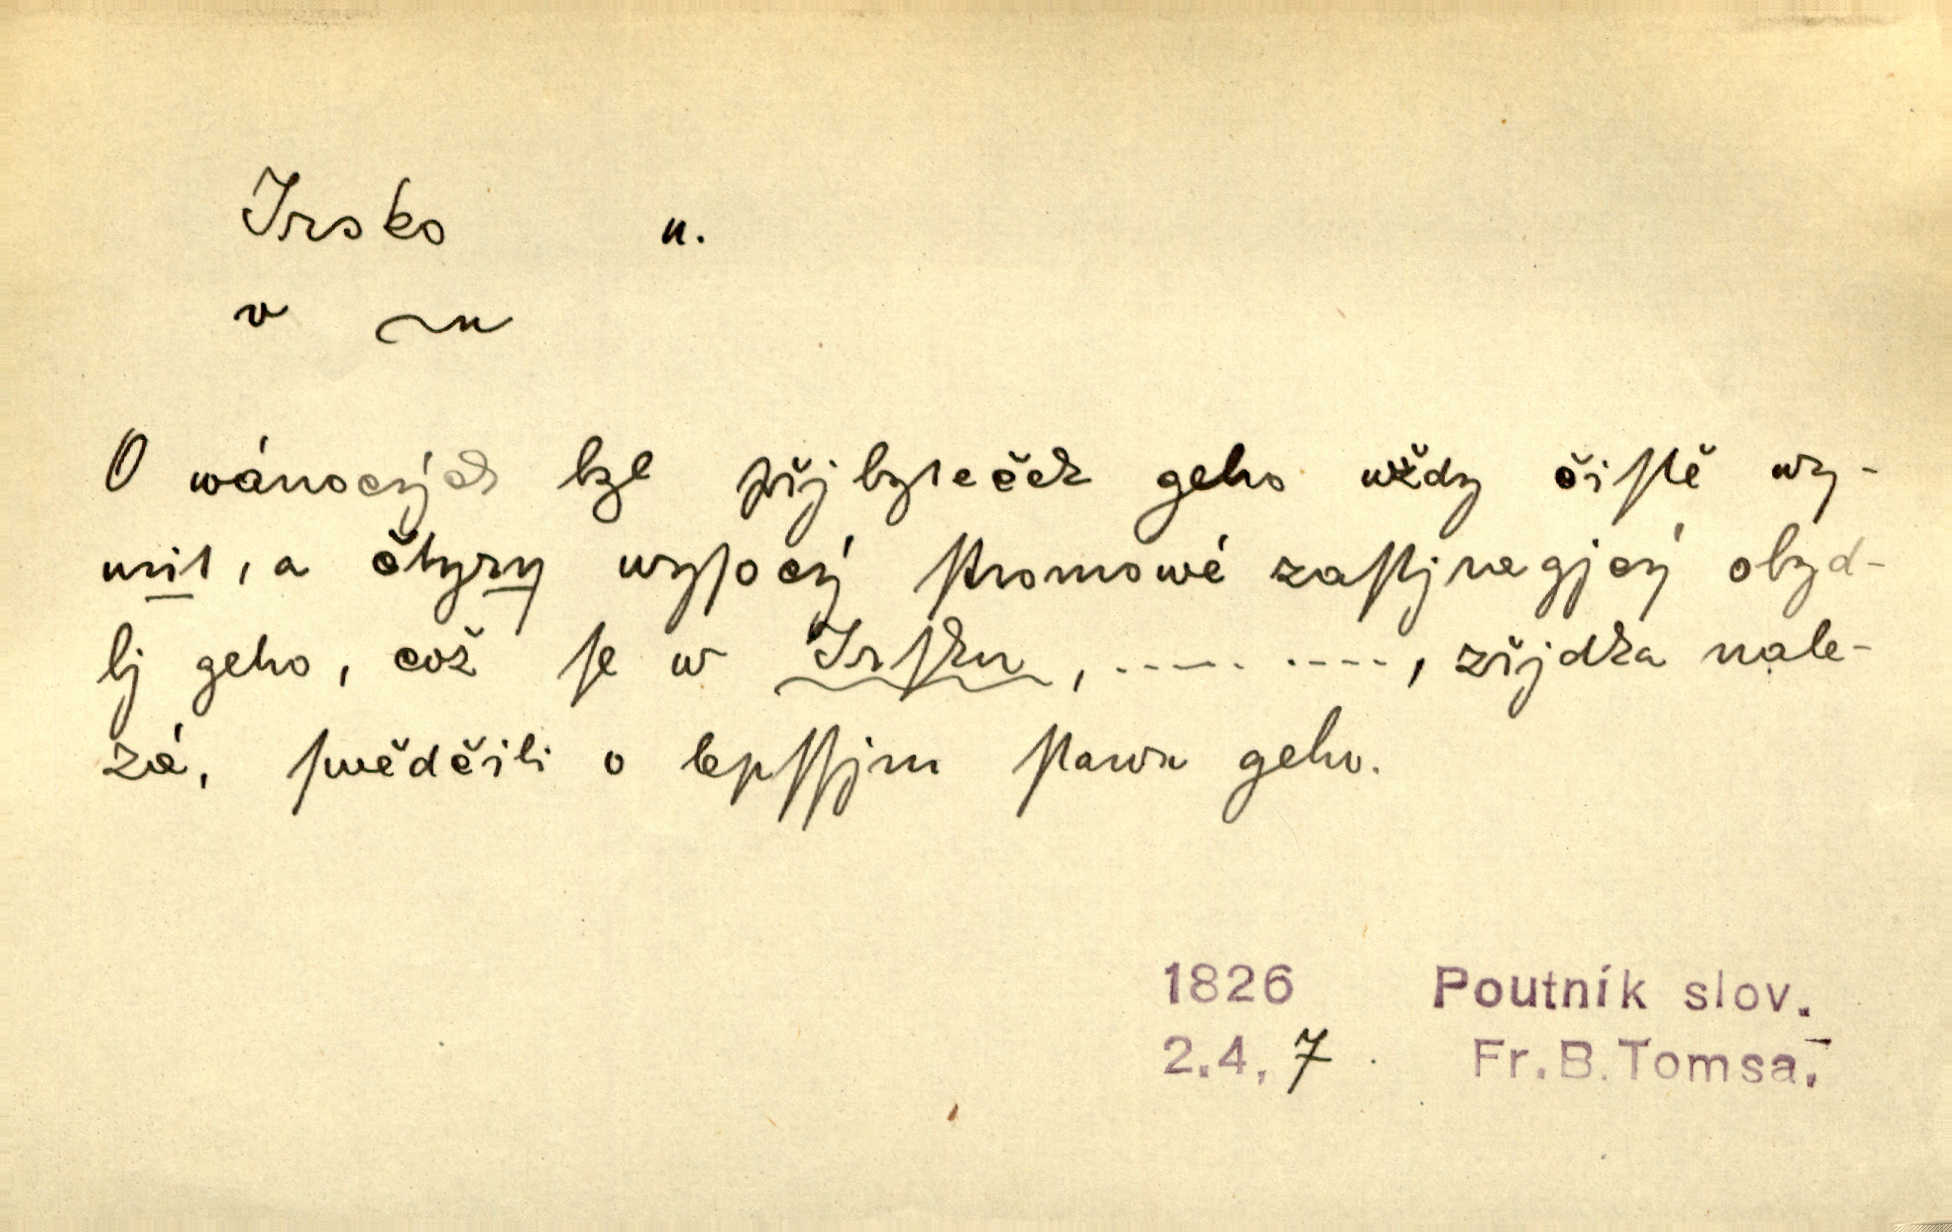 Irsko n.
v ~u
O wánocých byl přjbyteček geho wždy čistě wy-
mit, a čtyry wysocý stromowé zastjnagjcý obyd-
lj geho, což se w Irsku, ..... ...., zřjdka nale-
zá, swědčili o lepssjm stawu geho.
1826 Poutník slov.
2.4,7. Fr.B.Tomsa.